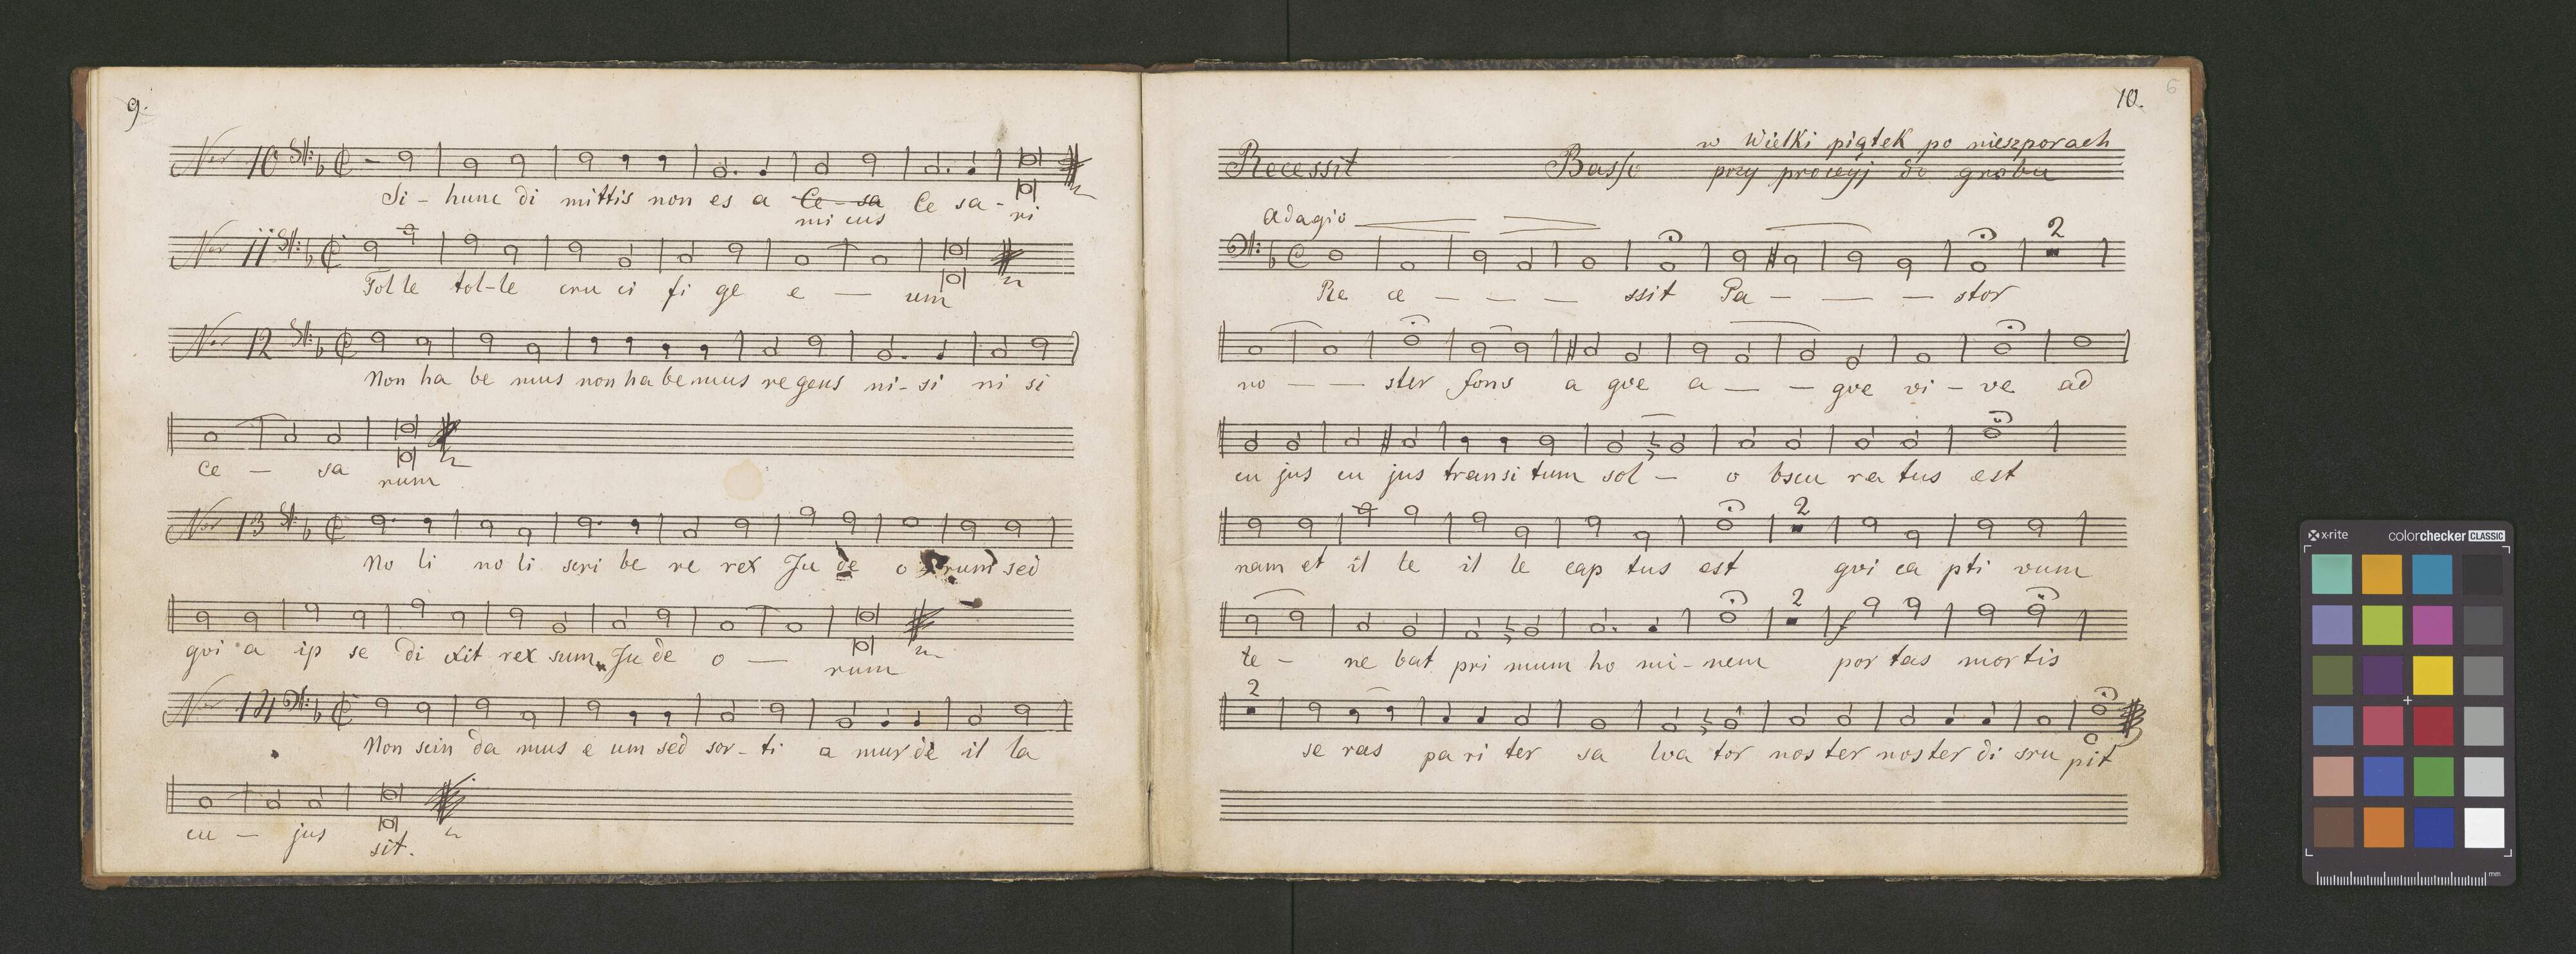 9.
Nor 10
Si - hunc di mittis non es a Ce - sa Ce sa - ri
mi cus
Nor 11
Tol le tol - le cru ci fi ge e — um
Nor 12
Non ha be mus non ha be mus re gens ni - si ni si
ce — sa rum
Nor 13
No li no li scri be re rex Ju de o rum sed
qvi a ip se di xit rex sum Ju de o — rum
Nor 14
Non scin da mus e um sed sor - ti a mur de il la
cu — jus sit.
10.
6
Recessit Basso w Wielki piątek po nieszporach
przy proceyj do grobu
Adagio
2
Re ce — — — ssit Pa — — — stor
no — — ster fons a qve a — — qve vi - ve ad
cu jus cu jus transi tum sol — o bscu ra tus est
2
nam et il le il le cap tus est qvi ca pti vum
2
f
te - ne bat pri mum ho mi - nem por tas mortis
2
se ras pa ri ter sa lva tor nos ter nos ter di sru pit
x-rite colorchecker CLASSIC
mm